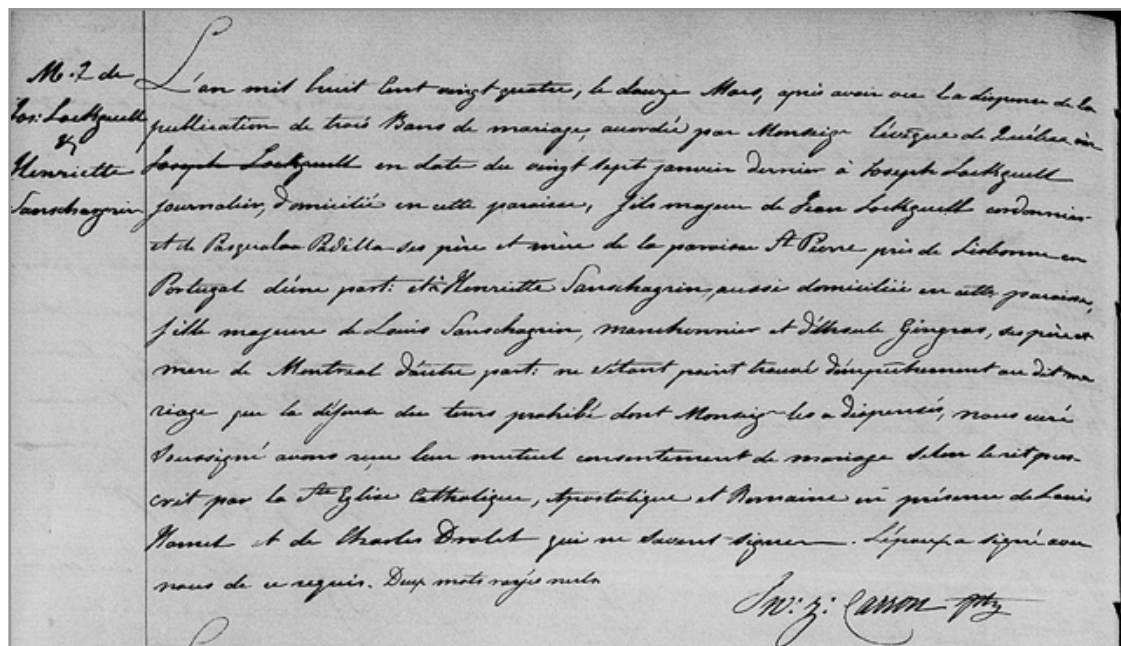 M. 2 de
Jos: Lockquell
&
Henriette
Sanschagrin
L'an mil huit cent vingt quatre, le douze Mars, après avoir vu la dispense de la
publication de trois Bans de mariage, accordée par Monseigr l'évêque de Québec
Joseph Lockquell en date du vingt sept janvier dernier à Joseph Lockquell
journalier, domicilié en cette paroisse, fils majeur de Jean Lockquell cordonnier
et de Padilla ses père et mère de la paroisse St Pierre près de Lisbonne en
Portugal d'une part: et Henriette Sanschagrin, aussi domiciliée en cette paroisse,
fille majeure de Louis Sanschagrin, manchonnier et d'Ursule Gingras, ses père et
mere de Montreal d'autre part: ne s'étant point trouvé d'empêchement au dit ma
riage que la défense du tems prohibé dont Monseigr les a dispensés, nous curé
soussigné avons reçu leur mutuel consentement de mariage selon le rit pres
crit par la Ste Eglise Catholique, Apostolique et Romaine en présence de Louis
Hamel et de Charles Drolet qui ne savent signer. L'époux a signé avec
nous de ce requis. Deux mots rayés nuls
Carron ptre